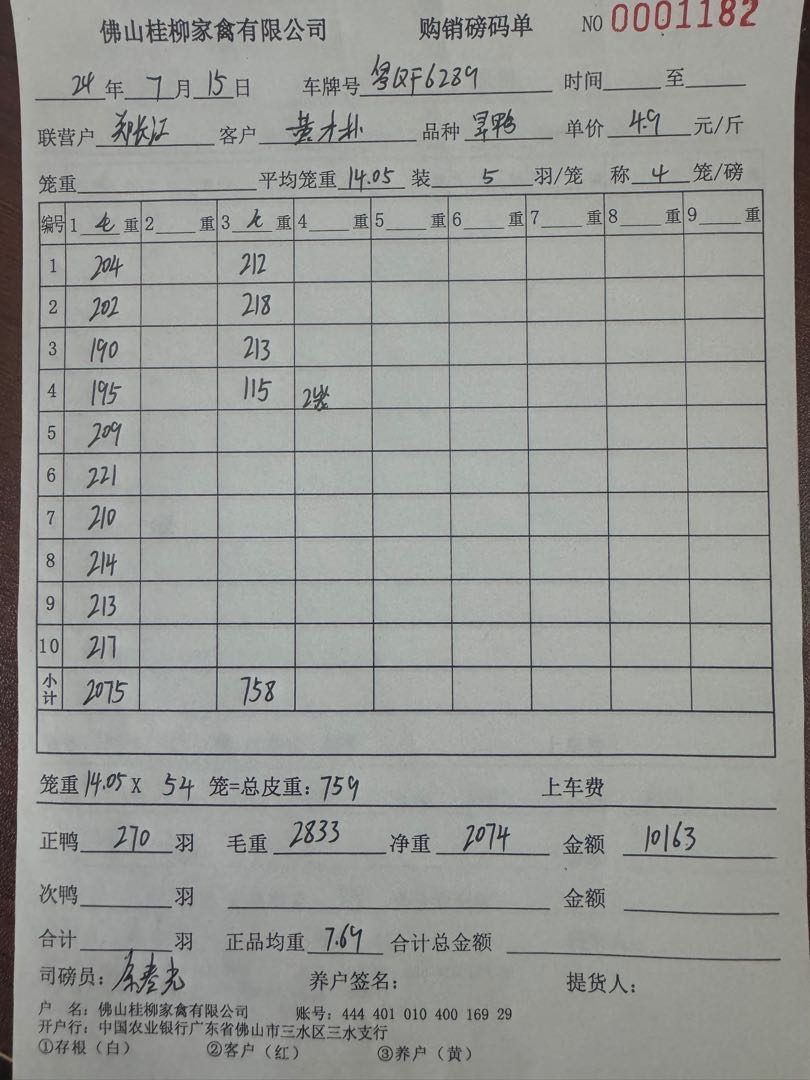 佛山桂柳家禽有限公司 购销磅码单 NO 0001182
24 年 7 月 15 日 车牌号 粤QF6289 时间 至
联营户 郑长江 客户 黄才朴 品种 旱鸭 单价 4.9 元/斤
笼重 平均笼重 14.05 装 5 羽/笼 称 4 笼/磅
编号 1 毛 重 2 重 3 毛 重 4 重 5 重 6 重 7 重 8 重 9 重
1 204 212
2 202 218
3 190 213
4 195 115 2笼
5 209
6 221
7 210
8 214
9 213
10 217
小计 2075 758
笼重 14.05 X 54 笼=总皮重: 759 上车费
正鸭 270 羽 毛重 2833 净重 2074 金额 10163
次鸭 羽 金额
合计 羽 正品均重 7.69 合计总金额
司磅员: 养户签名: 提货人:
户 名: 佛山桂柳家禽有限公司 账号: 444 401 010 400 169 29
开户行: 中国农业银行广东省佛山市三水区三水支行
①存根（白） ②客户（红） ③养户（黄）